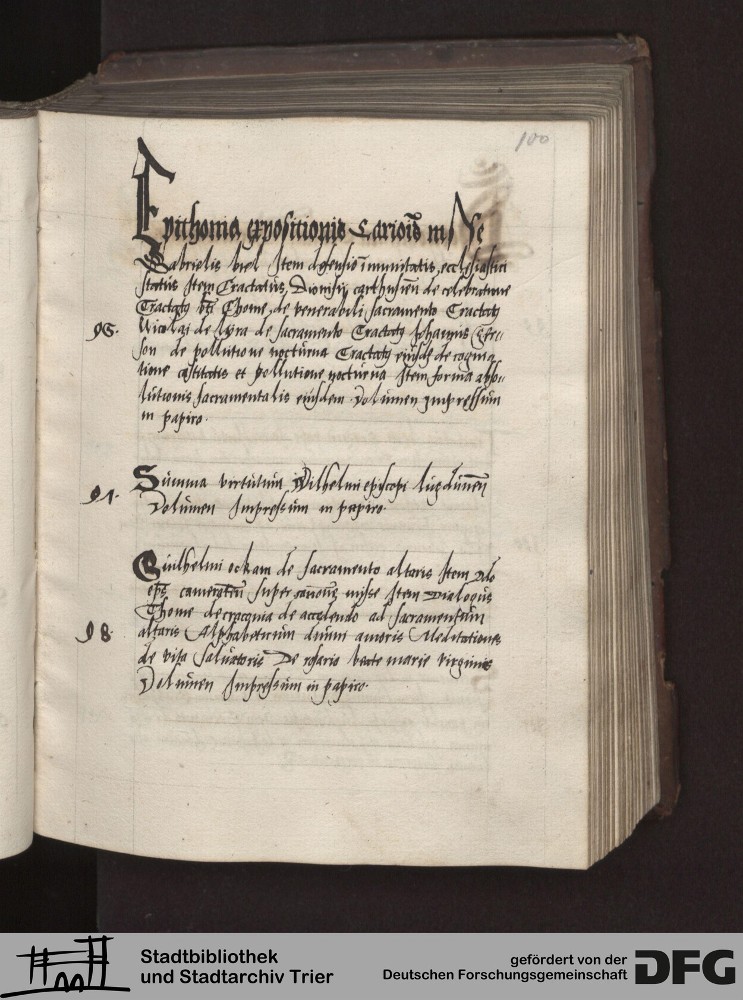 100
Epithoma expositionis Canonis misse
Gabrielis biel Item defensio immunitatis ecclesiastici
status Item Tractatus Dionisij carthusien de celebratione
Tractatus Thome de venerabili sacramento Tractatus
96. Nicolai de lyra de sacramento Tractatus Johannis Ger-
son de pollutione nocturna Tractatus eiusdem de cogni-
tione castitatis et pollutione nocturna Item forma abso-
lutionis sacramentalis eiusdem Volumen impressum
in papiro.
Summa virtutum Wilhelmi episcopi lugdunen
97. Volumen Impressum in papiro.
Guilhelmi ockam de sacramento altaris Item
eps cameracen super canone misse Item Dialogus
Thome de cracouia de accedendo ad sacramentum
98 altaris Alphabeticum diuini amoris Meditationes
de vita saluatoris De rosario beate marie virginis
Volumen Impressum in papiro.
Stadtbibliothek
und Stadtarchiv Trier
gefördert von der
Deutschen Forschungsgemeinschaft
DFG